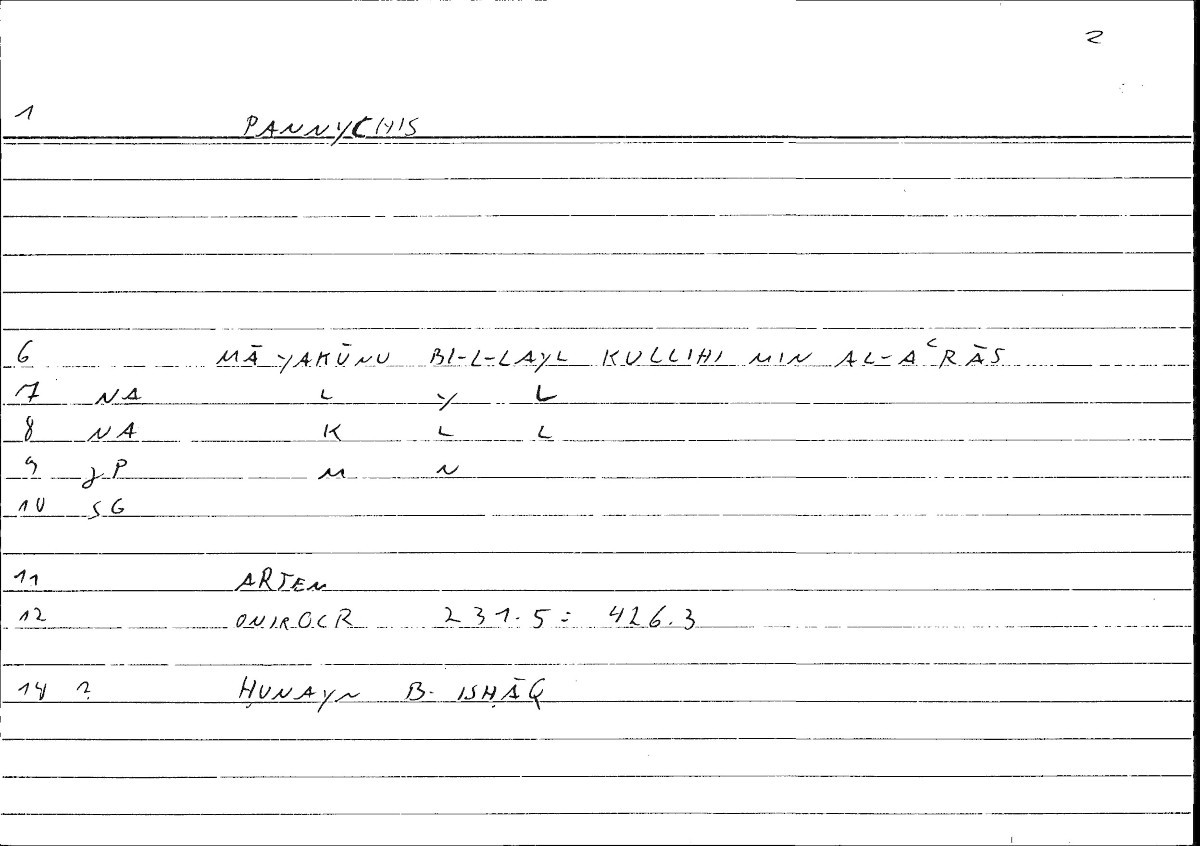 2
1 PANNYCHIS
6 MĀ YAKŪNU BI-L-LAYL KULLIHI MIN AL-AʿRĀS
7 NA L Y L
8 NA K L L
9 JP M N
10 SG
11 ARTEM
12 ONIROCR 231.5 = 426.3
14 2 ḤUNAYN B. ISḤĀQ